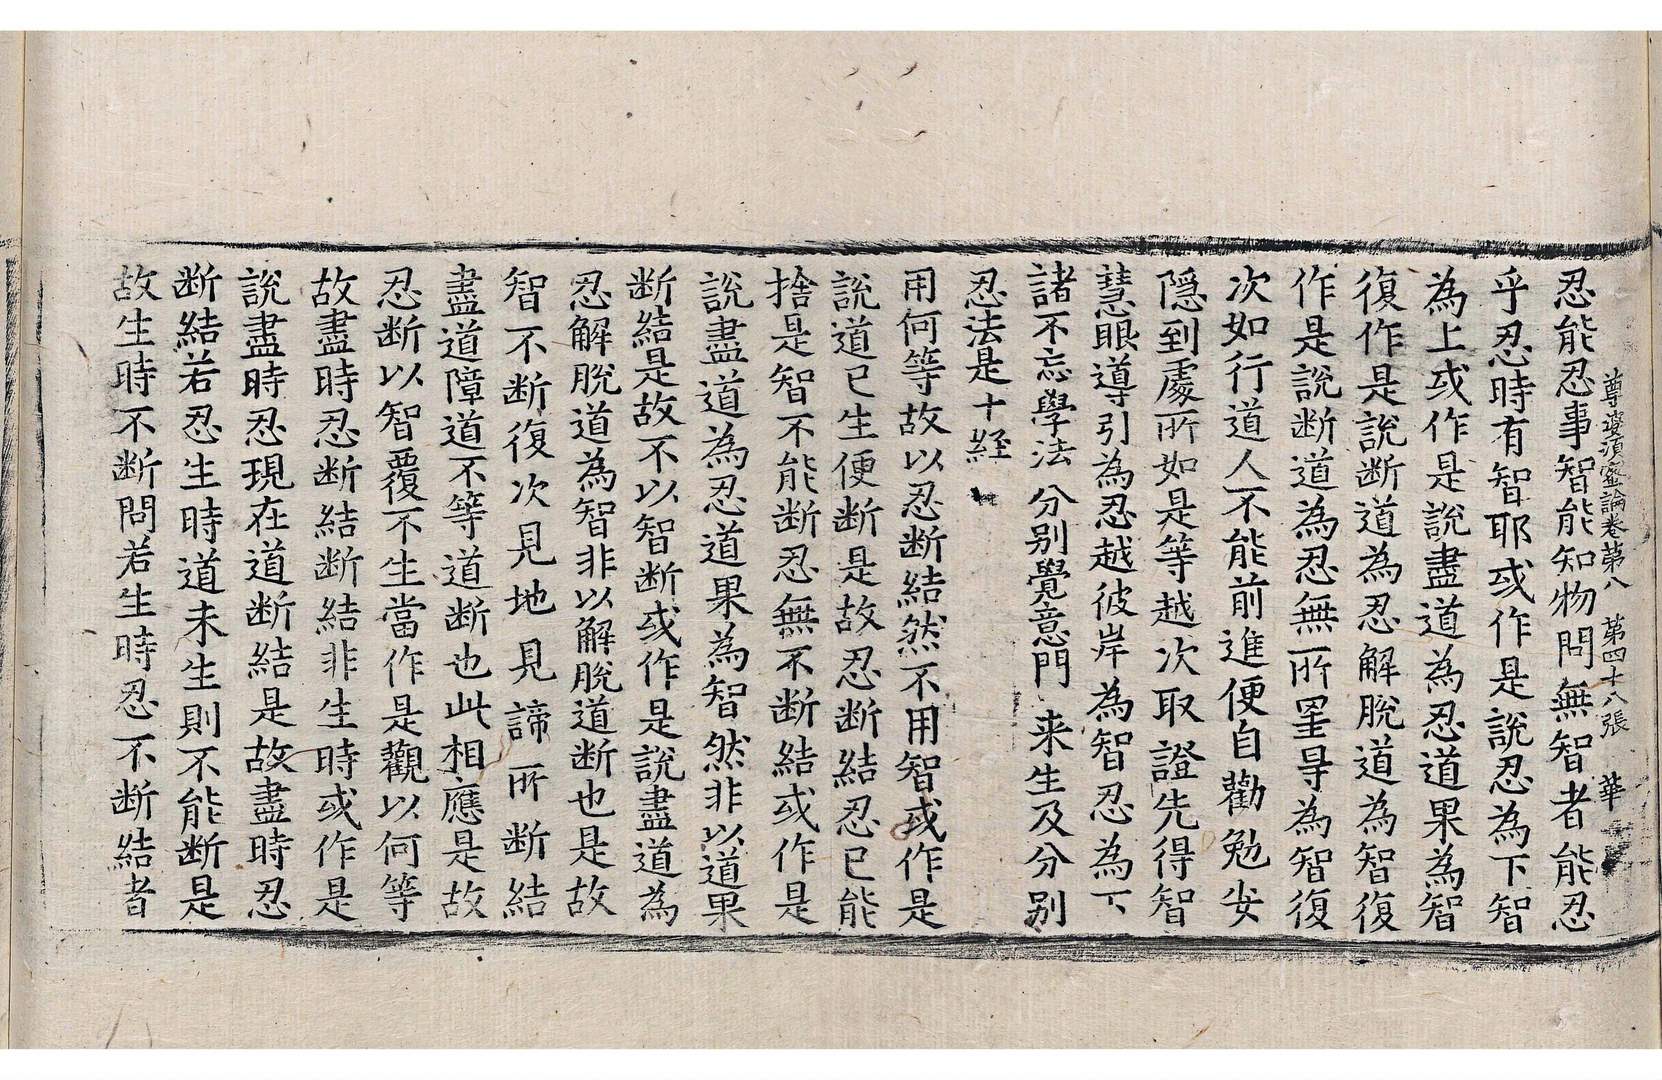 尊婆須蜜論卷第八　第四十八張　華
忍能忍事智能知物問無智者能忍
乎忍時有智耶或作是說忍為下智
為上或作是說盡道為忍道果為智
復作是說断道為忍解脫道為智復
作是說断道為忍無所罣㝵為智復
次如行道人不能前進便自勸勉安
隱到處所如是等越次取證先得智
慧眼導引為忍越彼岸為智忍為下
諸不忘學法　分别覺意門　来生及分别
忍法是十経
用何等故以忍断結然不用智或作是
說道已生便断是故忍断結忍已能
捨是智不能断忍無不断結或作是
說盡道為忍道果為智然非以道果
断結是故不以智断或作是說盡道為
忍解脫道為智非以解脫道断也是故
智不断復次見地見諦所断結
盡道障道不等道断也此相應是故
忍断以智覆不生當作是觀以何等
故盡時忍断結断結非生時或作是
說盡時忍現在道断結是故盡時忍
断結若忍生時道未生則不能断是
故生時不断問若生時忍不断結者